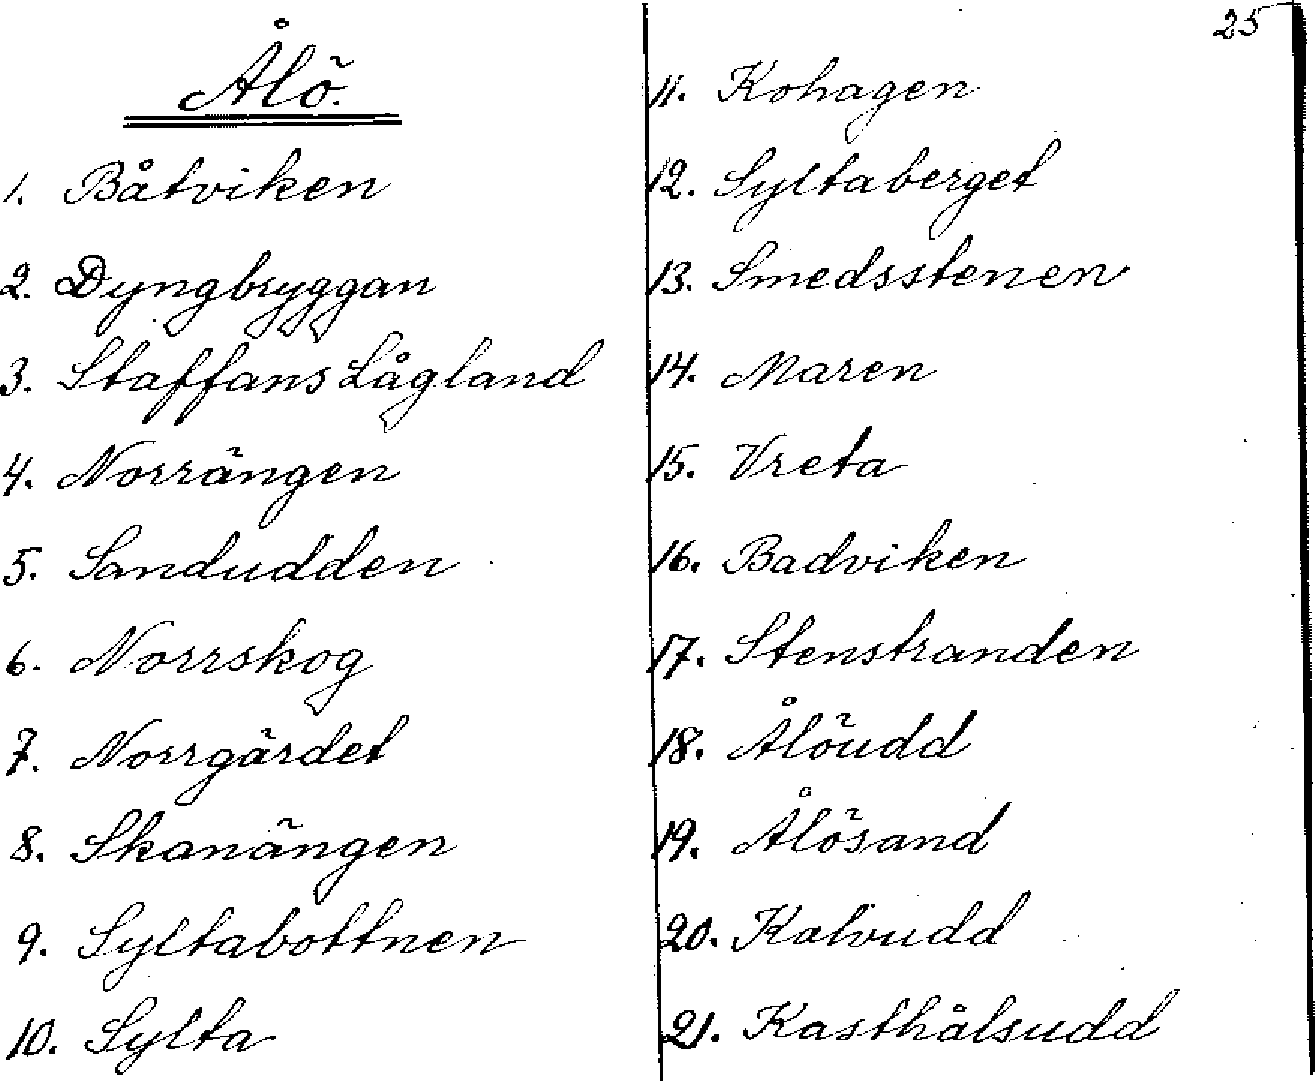 25
Ålö.
1. Båtviken
2. Dyngbryggan
3. Staffans Lågland
4. Norrängen
5. Sandudden
6. Norrskog
7. Norrgärdet
8. Skanängen
9. Syltabottnen
10. Sylta
11. Kohagen
12. Syltaberget
13. Smedsstenen
14. Maren
15. Vreta
16. Badviken
17. Stenstranden
18. Ålöudd
19. Ålösand
20. Kalvudd
21. Kasthålsudd